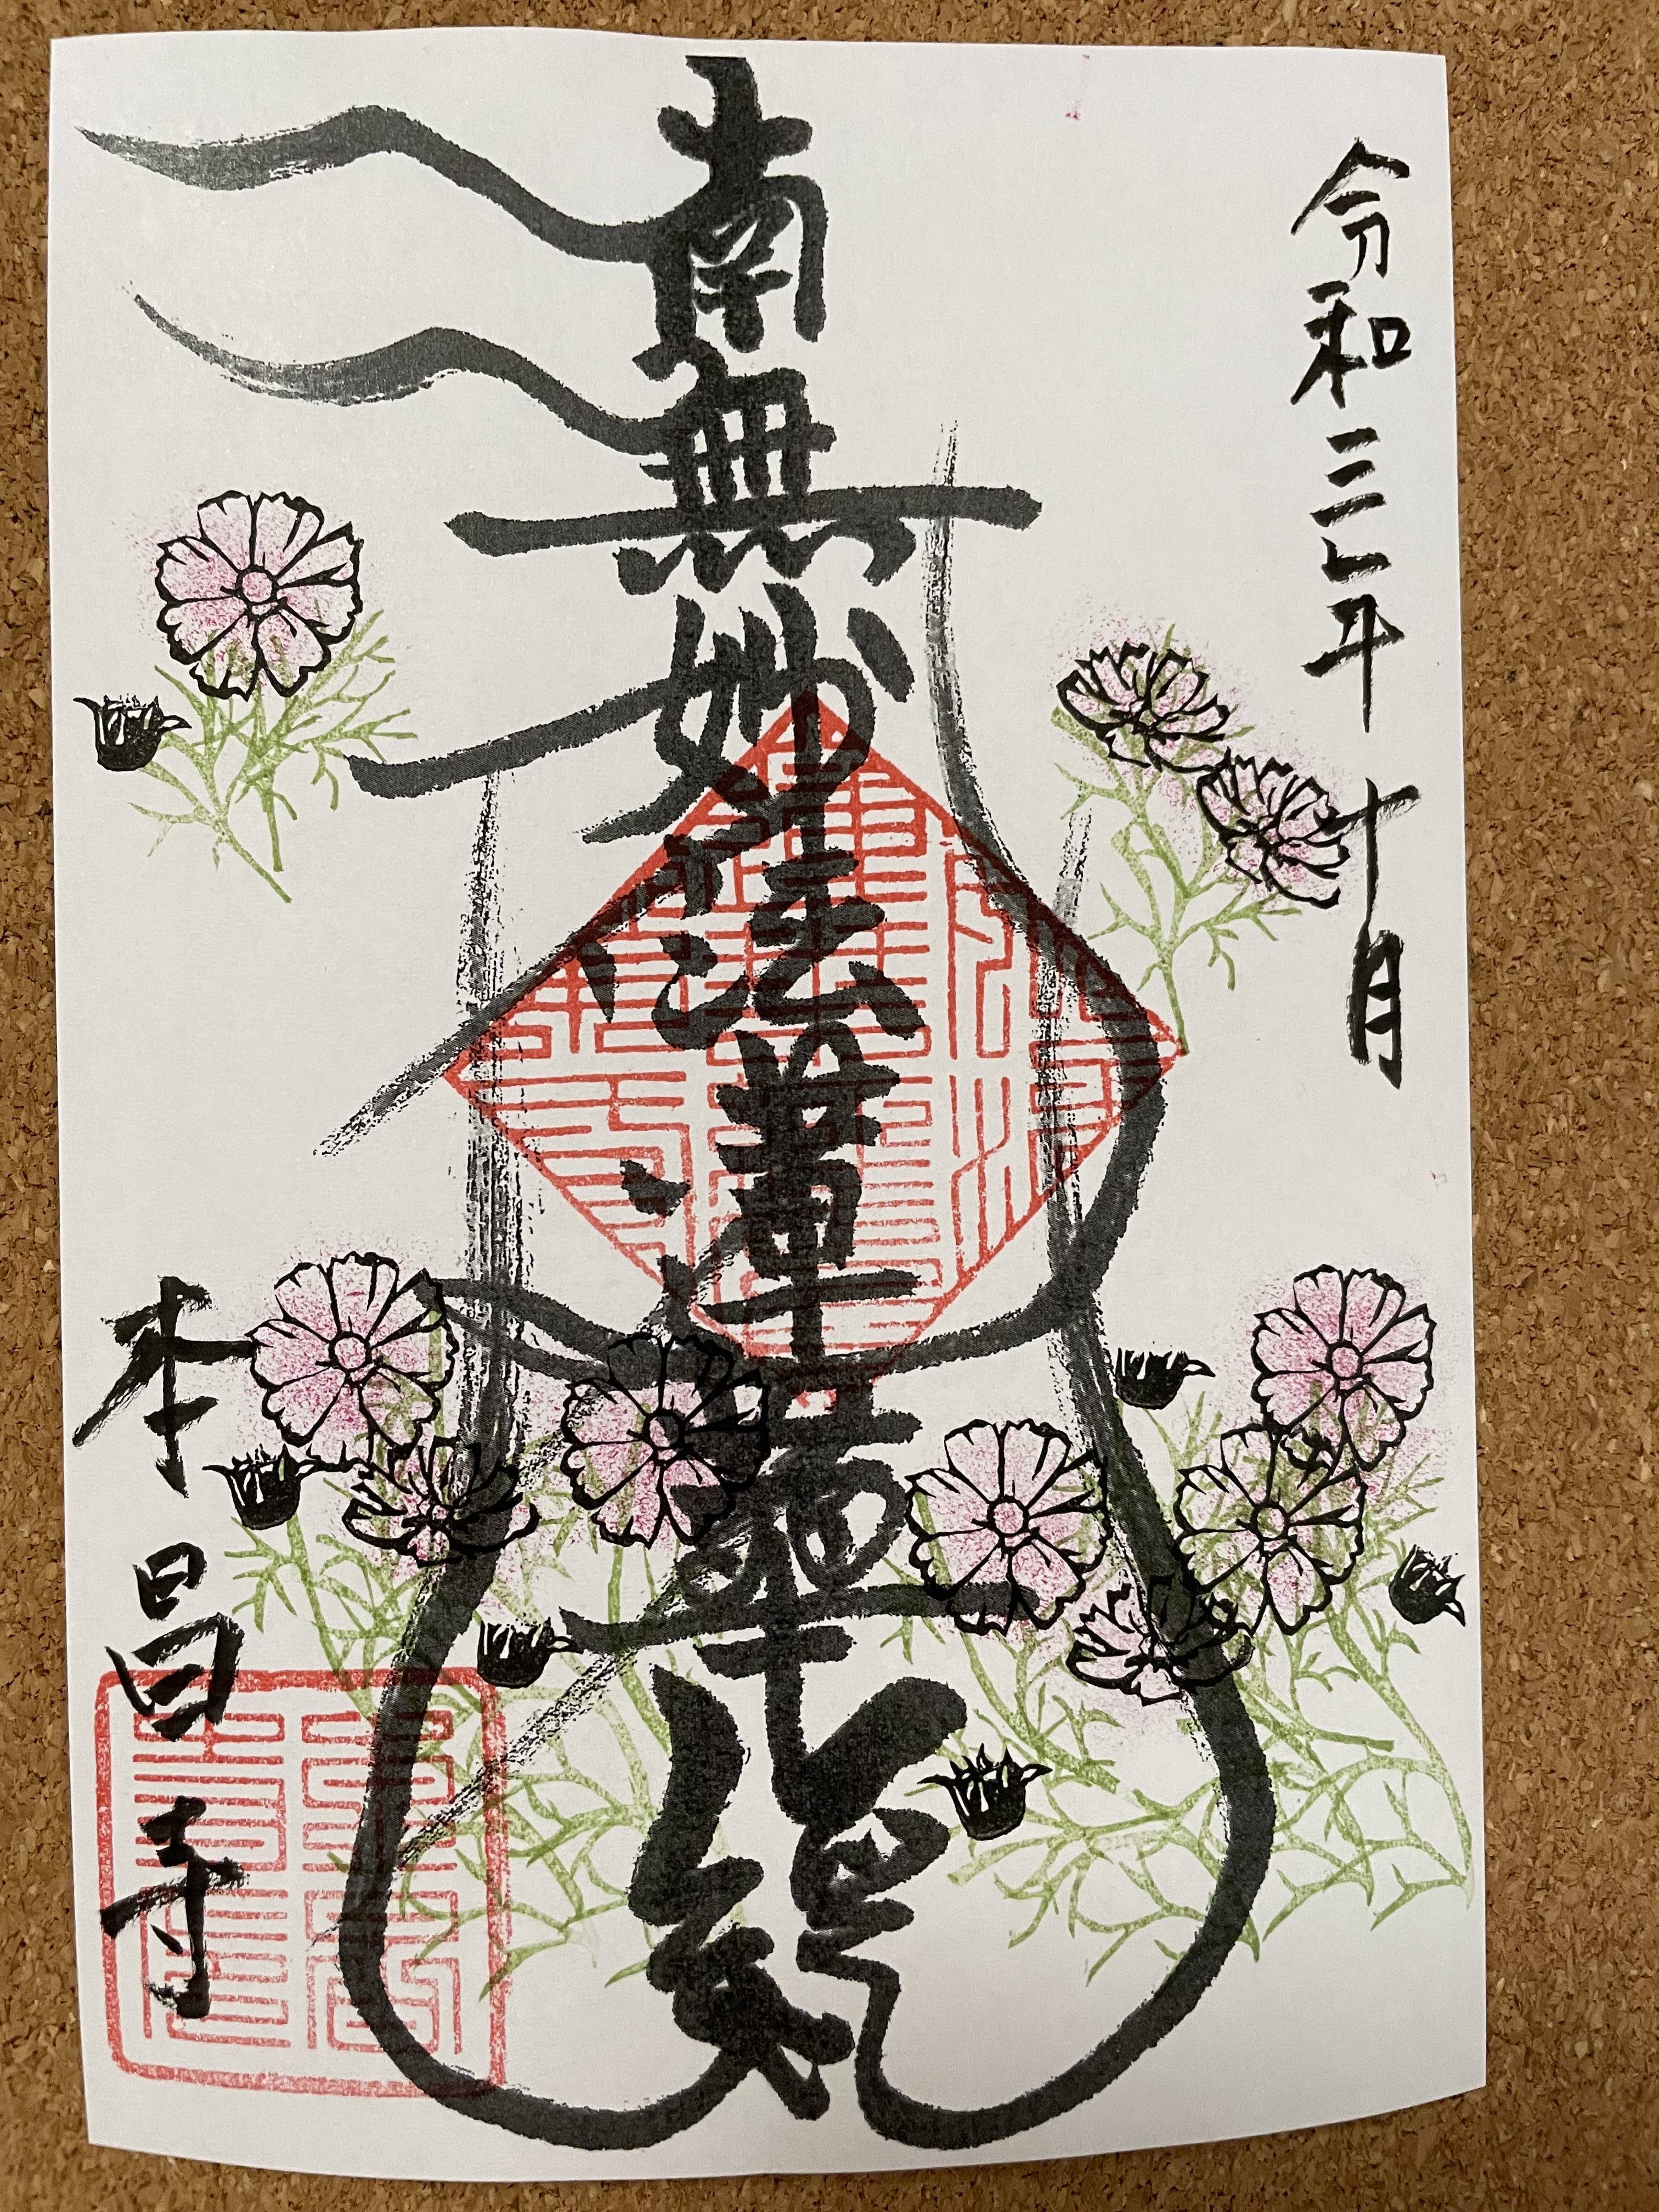 令和三年十月
南無妙法蓮華経
本昌寺